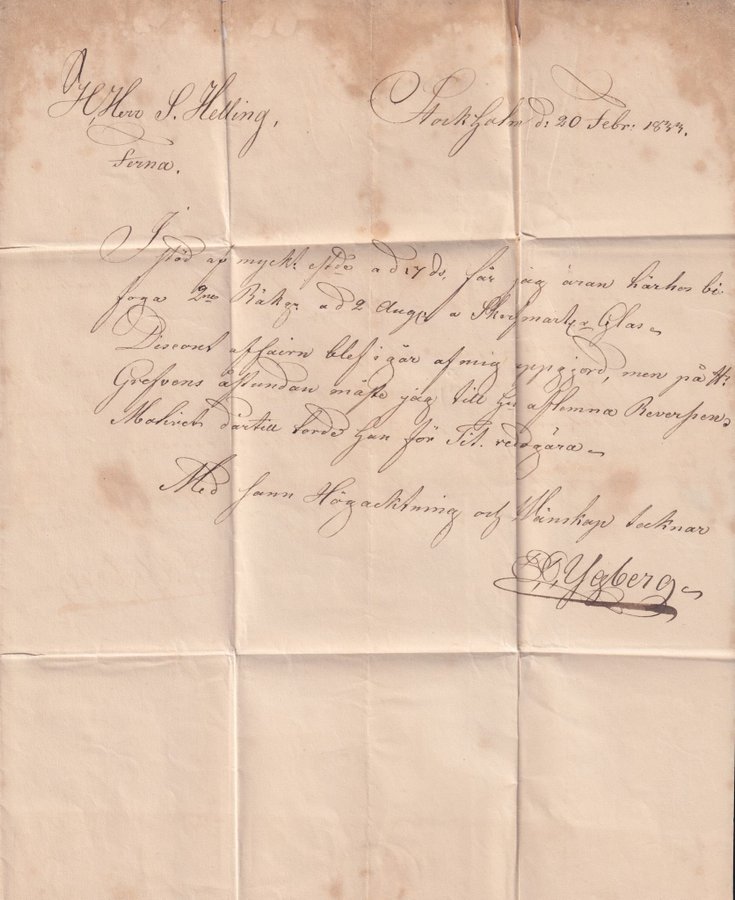 H, Herr S. Helling,
Stockholm d: 20 Febr: 1833.
Ferna.
I stöd af myckt ad 17 ds, får jag äran härhos bi
foga 2ne Räkr ad 2 Aug a Glas
Discont affairn blef igår af mig uppgjord, men på H:
Grefvens åstundan måste jag till aflemna Reversen,
Motivet därtill torde han för Tit. redogöra
Med sann Högacktning och Wänskap tecknar
Ygberg